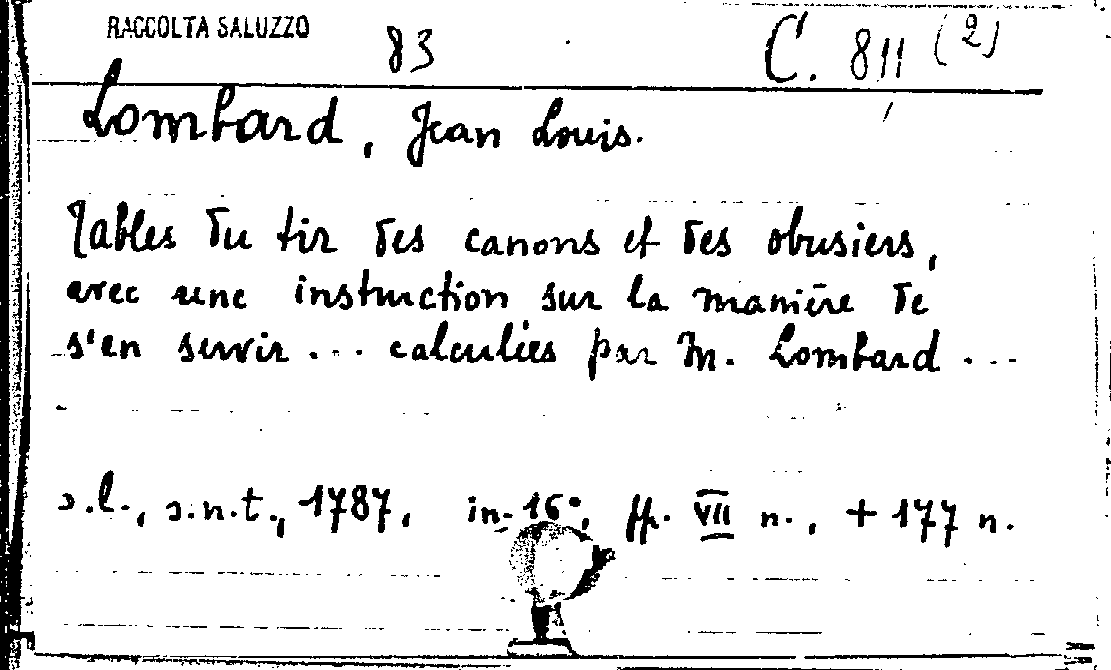 RACCOLTA SALUZZO
83 C. 811 (2)
Lombard, Jean Louis.
Tables du tir des canons et des obusiers,
avec une instruction sur la manière de
s'en servir ... calculées par M. Lombard ...
s.l., s.n.t., 1787, in-16°, ff. VII n., + 177 n.